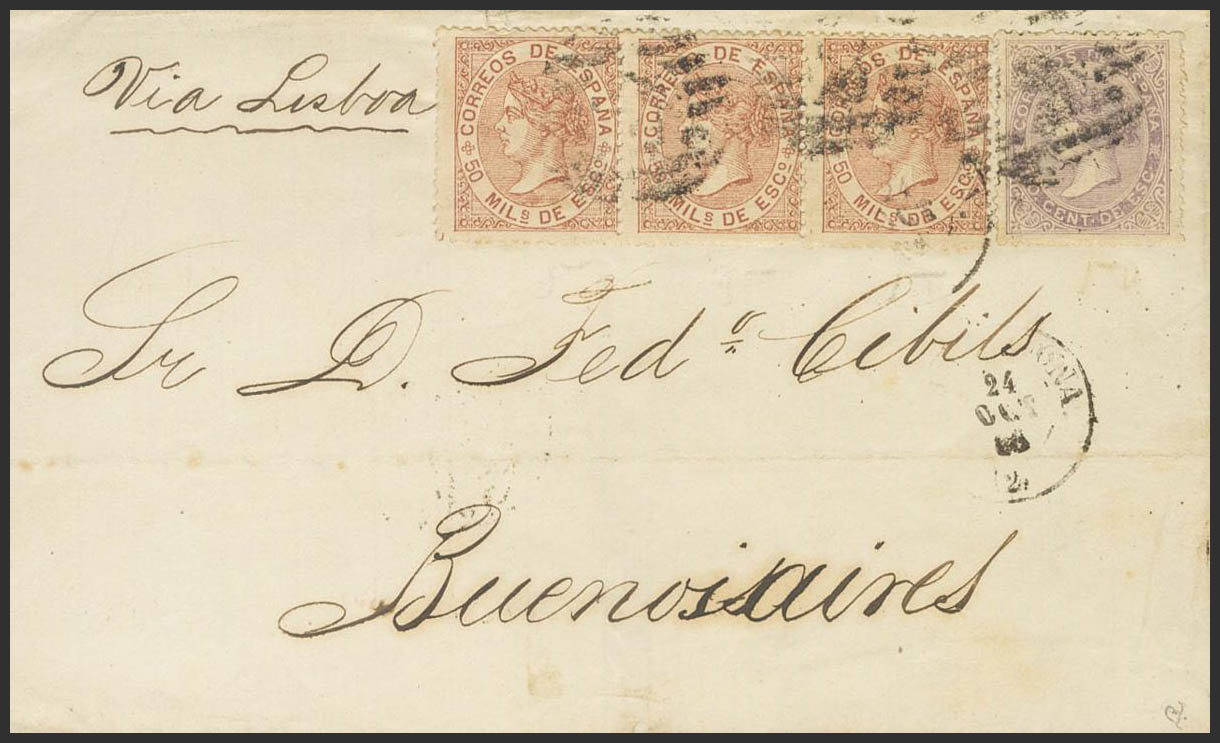 Via Lisboa
CORREOS DE ESPAÑA
50 MILS DE ESCO
CORREOS DE ESPAÑA
MILS DE ESCO
CORREOS DE ESPAÑA
50 MILS DE ESCO
ESPAÑA
CENT. DE ESC.
Sr D. Fedo Cibils
24
OCT
Buenos aires